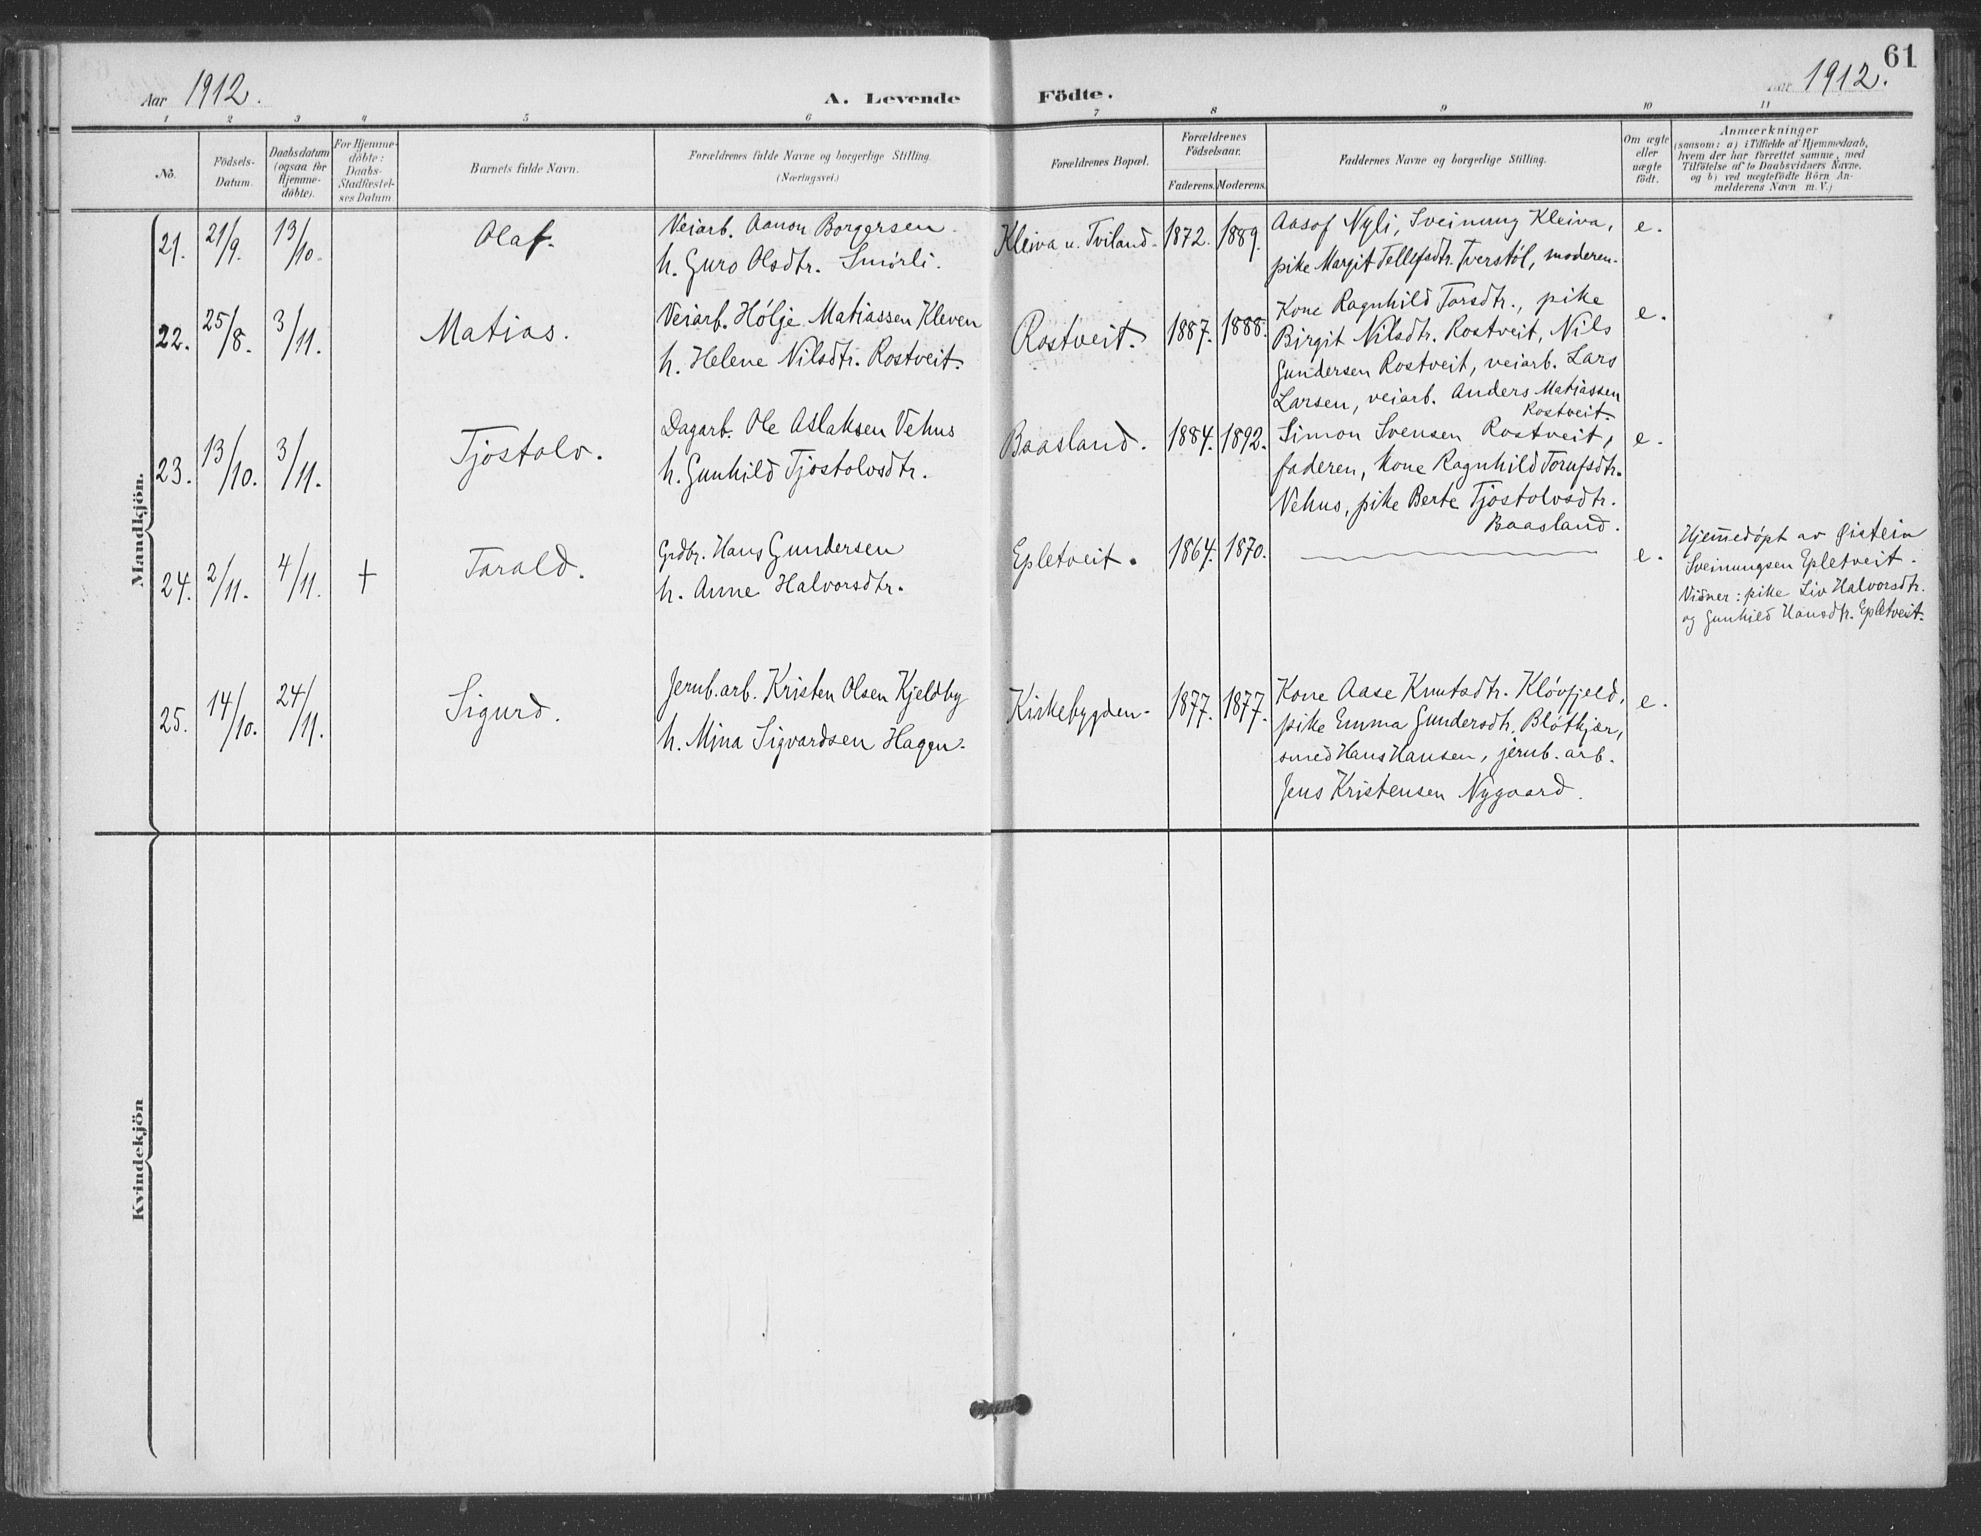 61
Aar 1912.
A. Levende Födte.
Aar 1912.
1 2 3 4 5 6 7 8 9 10 11
No.
Födsels-
Datum.
Daabsdatum
(ogsaa for
Hjemme-
döbte).
For Hjemme-
döbte:
Daabs-
Stadfæstel-
ses Datum
Barnets fulde Navn.
Forældrenes fulde Navne og borgerlige Stilling.
(Næringsvei.)
Forældrenes Bopæl.
Forældrenes
Födselsaar.
Faderens. Moderens.
Faddernes Navne og borgerlige Stilling.
Om ægte
eller
uægte
födt.
Anmærkninger
(saasom: a) i Tilfælde af Hjemmedaab,
hvem der har forrettet samme, med
Tilföielse af to Daabsvidners Navne.
og b) ved uægtefödte Börn An-
melderens Navn m. V.)
Mandkjön.
21. 21/9. 13/10. Olaf.
Veiarb. Aanon Borgersen
h. Guro Olsdtr. Smörli.
Kleiva u. Tviland. 1872. 1889.
Aasof Nyli, Sveinung Kleiva,
pike Margit Tellefsdtr. Tverstöl, moderen.
e.
22. 25/8. 3/11. Matias.
Veiarb. Hölje Matiassen Kleven
h. Helene Nilsdtr. Rostveit.
Rostveit. 1887. 1888.
Kone Ragnhild Torsdtr., pike
Birgit Nilsdtr. Rostveit, Nils
Gundersen Rostveit, veiarb. Lars
Larsen, veiarb. Anders Matiassen
Rostveit.
e.
23. 13/10. 3/11. Tjostolv.
Dagarb. Ole Aslaksen Vehus
h. Gunhild Tjostolvsdtr.
Baasland. 1884. 1892.
Simon Svensen Rostveit,
faderen, kone Ragnhild Torufsdtr.
Vehus, pike Berte Tjostolvsdtr.
Baasland.
e.
24. 2/11. 4/11. + Tarald.
Grdbr. Hans Gundersen
h. Anne Halvorsdtr.
Epletveit. 1864. 1870.
e.
Hjemmedöpt av Øistein
Sveinungsen Epletveit.
Vidner: pike Liv Halvorsdtr.
og Gunhild Hansdtr. Epletveit.
25. 14/10. 24/11. Sigurd.
Jernb.arb. Kristen Olsen Kjeldby
h. Mina Sigvardsen Hagen.
Kirkebygden. 1877. 1877.
Kone Aase Knutsdtr. Klövfjeld,
pike Emma Gundersdtr. Blötkjær,
smed Hans Hansen, jernb. arb.
Jens Kristensen Nygaard.
e.
Kvindekjön